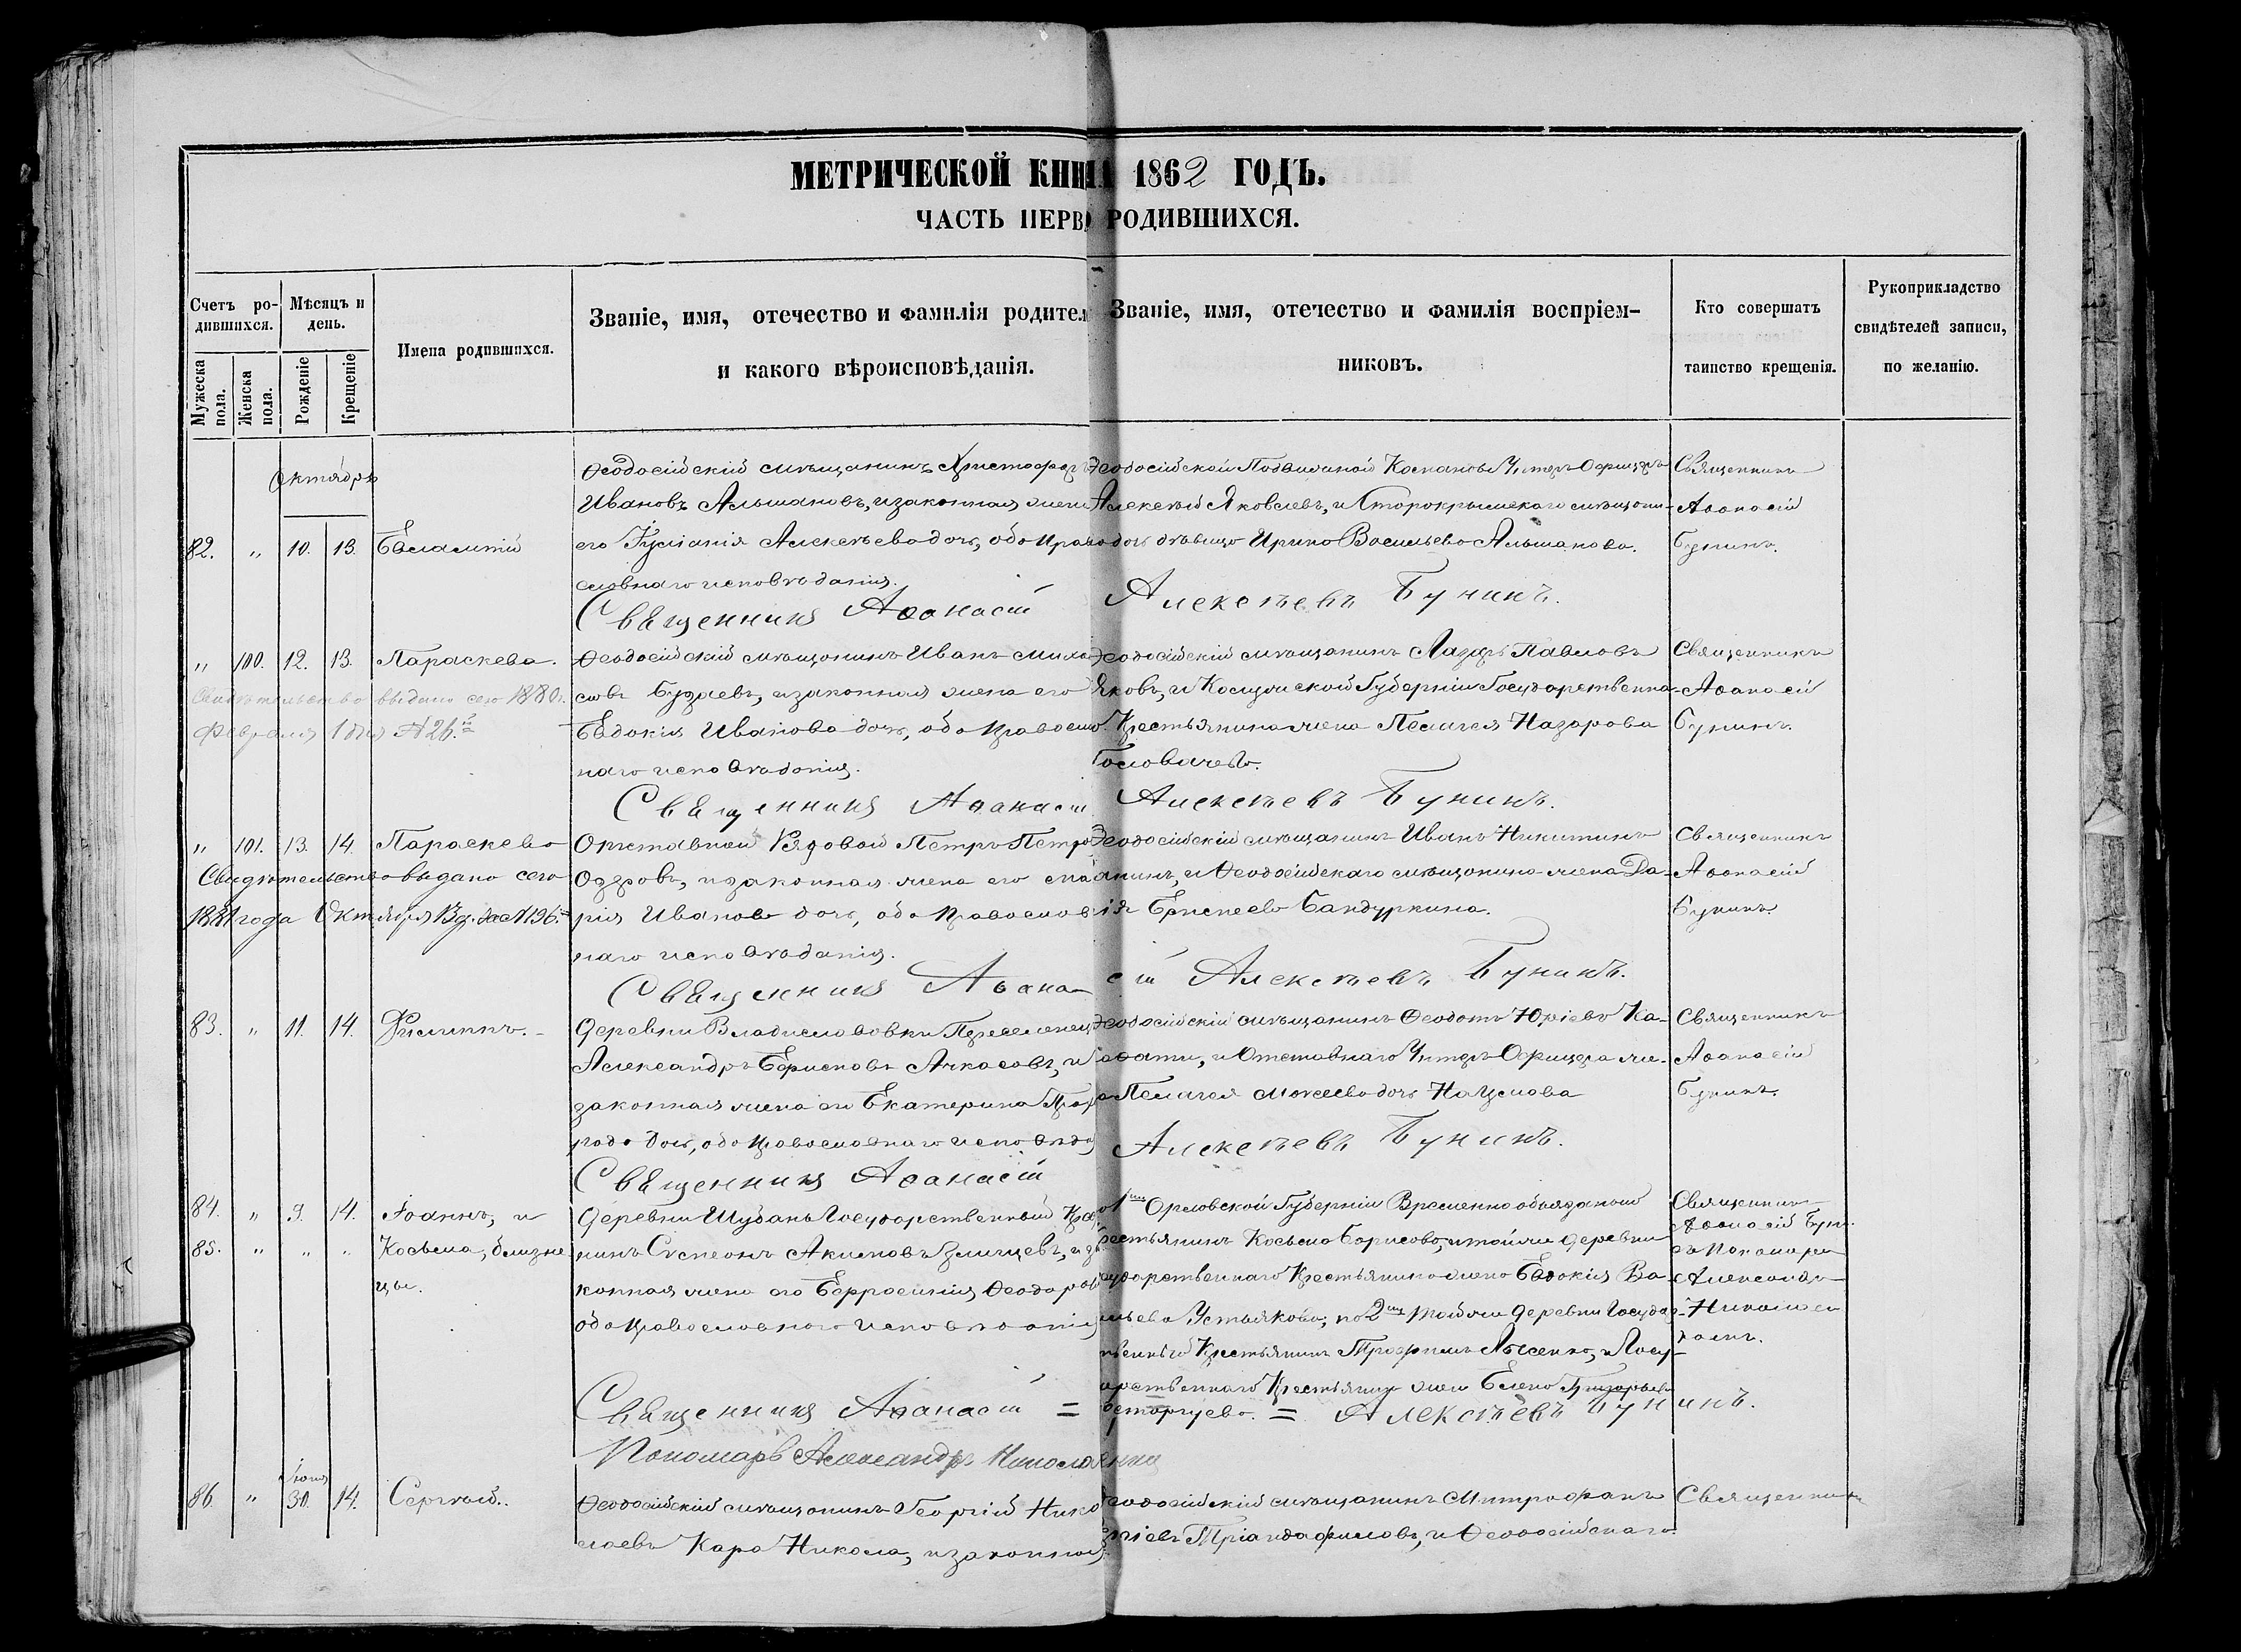 МЕТРИЧЕСКОЙ КНИГА 1862 ГОДЪ.
ЧАСТЬ ПЕРВА РОДИВШИХСЯ.
Счетъ родившихся.
Мужеска пола.
Женска пола.
Мѣсяцъ и день.
Рожденіе
Крещеніе
Имена родившихся.
Званіе, имя, отечество и фамилія родител
и какого вѣроисповѣданія.
Званіе, имя, отечество и фамилія воспріем-
никовъ.
Кто совершатъ
таинство крещенія.
Рукоприкладство
свидѣтелей записи,
по желанію.
Октябрь
82. " 10. 13. Евлампій
Ѳеодосійскій мѣщанинъ Христофоръ
Ивановъ Альшановъ, и законная жена
его Іуліанія Алексѣева дочь, оба право
славнаго исповѣданія.
Ѳеодосійской Подвижной Унтеръ Офицеръ
Алексѣй Яковлевъ, и Старокрымскаго мѣщани-
дочь дѣвица Ирина Васильева Альшанова.
Священникъ
Аѳанасій
Бунинъ.
Священникъ Аѳанасій Алексѣевъ Бунинъ.
" 100. 12. 13. Параскева.
Свидѣтельство выдано сего 1880.
Февраля 1 дня №26.
Ѳеодосійскій мѣщанинъ Иванъ Миха
ловъ Бузаевъ, и законная жена его
Евдокія Иванова дочь, оба православ
наго исповѣданія.
Ѳеодосійскій мѣщанинъ Лазарь Павловъ
Яковъ, и Губерніи Государственна-
Крестьянина жена Пелагея Назарова
Головачева.
Священникъ
Аѳанасій
Бунинъ.
Священникъ Аѳанасій Алексѣевъ Бунинъ.
" 101. 13. 14. Параскева
Свидѣтельство выдано сего
1881 года Октября 13 д. за №196.
Отставной Рядовой Петръ Петро
Озеровъ, и законная жена его Ма
рія Иванова дочь, оба православ
наго исповѣданія.
Ѳеодосійскій мѣщанинъ Иванъ Никитинъ
и Ѳеодосійскаго мѣщанина жена Да-
рія Елисеева Бандуркина.
Священникъ
Аѳанасій
Бунинъ.
Священникъ Аѳанасій Алексѣевъ Бунинъ.
83. " 11. 14. Филиппъ.
Деревни Владиславовки Переселенецъ
Александръ Ефимовъ Ачкасовъ, и
законная жена его Екатерина
дочь, оба православнаго исповѣда
Ѳеодосійскій мѣщанинъ Ѳеодотъ Юрьевъ Ка-
и Отставнаго Унтеръ Офицера же-
на Пелагея Моисеева дочь Наумова
Священникъ
Аѳанасій
Бунинъ.
Священникъ Аѳанасій Алексѣевъ Бунинъ.
84. " 9. 14. Іоаннъ, и
85. " " " Косьма, близне
цы.
Деревни Шубаны Государственный Кресть
нинъ Симеонъ Акимовъ и за
конная жена его Евфросинія Ѳеодорова
оба православнаго исповѣданія
1 Орловской Губерніи Временно обязанный
Крестьянинъ Косьма Борисовъ, и той же деревни
Государственнаго Крестьянина жена Евдокія Ва-
сильева Устьякова; по 2 той же деревни Государ-
ственный Крестьянинъ Трофимъ Лысенко, и Госу-
дарственнаго Крестьянина жена Елена Григорьева
Священникъ
Аѳанасій Бунинъ
съ Пономаремъ
Александромъ
Николаен
Священникъ Аѳанасій = = Алексѣевъ Бунинъ.
Пономарь Александръ
86. " Іюня 30. 14. Сергѣй.
Ѳеодосійскій мѣщанинъ Георгій Нико
лаевъ Кара Никола, и законная
Ѳеодосійскій мѣщанинъ Митрофанъ
Тріандафиловъ, и Ѳеодосійскаго
Священникъ